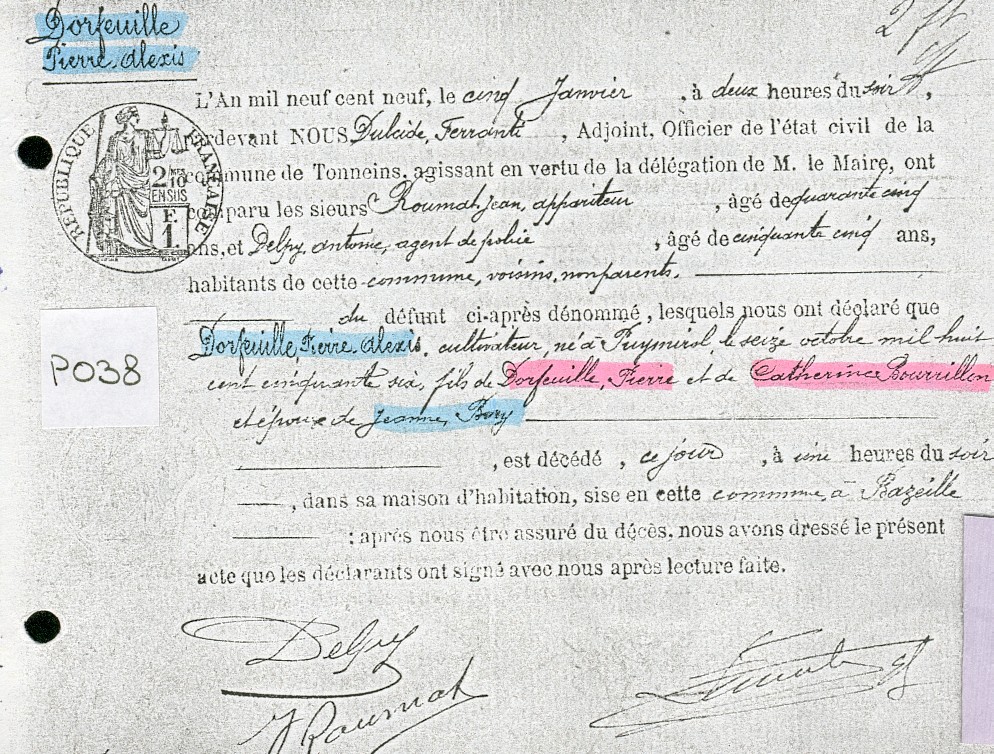 Dorfeuille
Pierre Alexis
2 ft
RÉPUBLIQUE FRANÇAISE
2/10
EN SUS
F.
1
L'An mil neuf cent neuf, le cinq Janvier, à deux heures du soir,
rdevant NOUS Dulcide, Ferrante, Adjoint, Officier de l'état civil de la
commune de Tonneins, agissant en vertu de la délégation de M. le Maire, ont
comparu les sieurs Roumat Jean, appariteur, âgé de quarante cinq
ans, et Delpy, antoine, agent de police, âgé de cinquante cinq ans,
habitants de cette commune, voisins, non parents.
du défunt ci-après dénommé, lesquels nous ont déclaré que
Dorfeuille, Pierre Alexis, cultivateur, né à Puymirol, le seize octobre mil huit
cent cinquante six, fils de Dorfeuille, Pierre et de Catherine Bourrillon
et époux de Jeanne,
, est décédé, ce jour, à une heures du soir
, dans sa maison d'habitation, sise en cette commune, à Bazeille
: après nous être assuré du décès, nous avons dressé le présent
acte que les déclarants ont signé avec nous après lecture faite.
PO38
Delpy
J Roumat